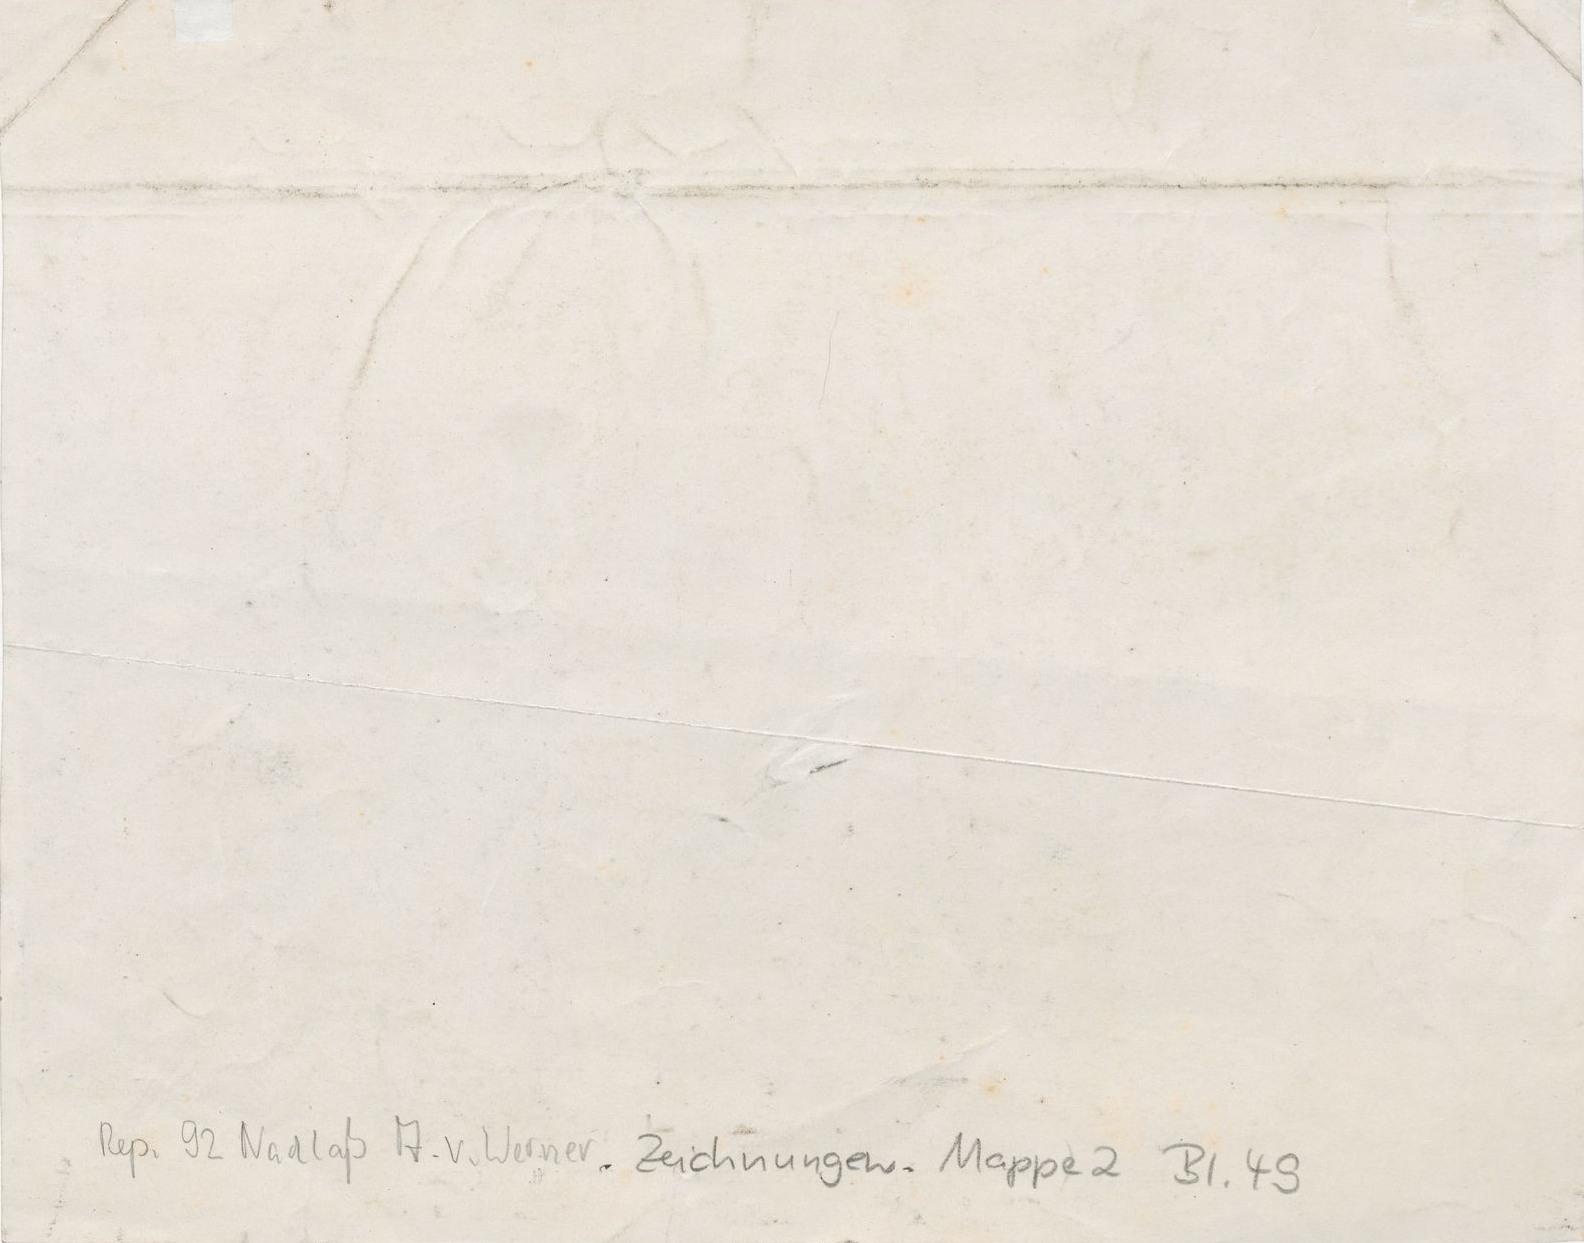 Rep. 92 Nachlaß A. v. Werner. Zeichnungen. Mappe 2 Bl. 49